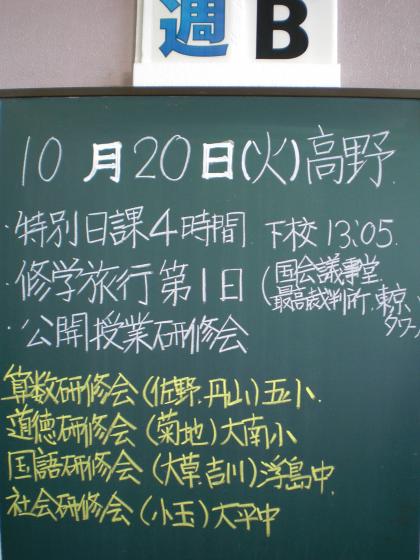 週B
10月20日(火)高野
・特別日課4時間 下校13:05
・修学旅行第1日(国会議事堂、最高裁判所、東京タワー
・公開授業研修会
算数研修会(佐野.丹山)五小
道徳研修会(菊地)大南小
国語研修会(大草.吉川)浮島中
社会研修会(小玉)大平中